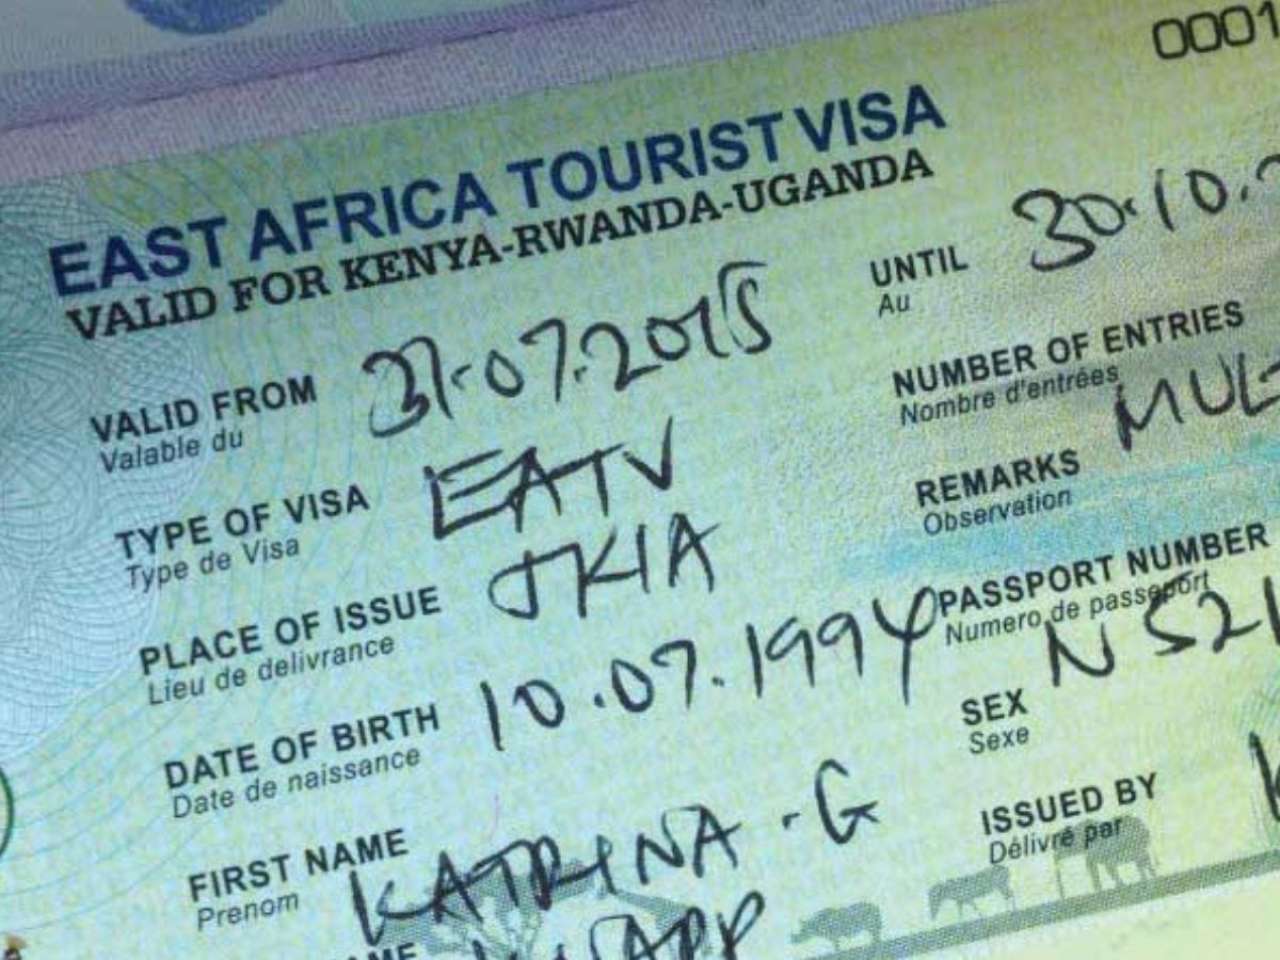 0001
EAST AFRICA TOURIST VISA
VALID FOR KENYA-RWANDA-UGANDA
VALID FROM 31.07.2015 UNTIL 30.10.
Valable du Au
NUMBER OF ENTRIES
Nombre d'entrées MUL
TYPE OF VISA EATV REMARKS
Type de Visa Observation
PLACE OF ISSUE JKIA PASSPORT NUMBER
Lieu de delivrance Numero de passeport N521
DATE OF BIRTH 10.07.1994 SEX
Date de naissance Sexe
FIRST NAME KATRINA-G ISSUED BY K
Prenom Délivré par
AME